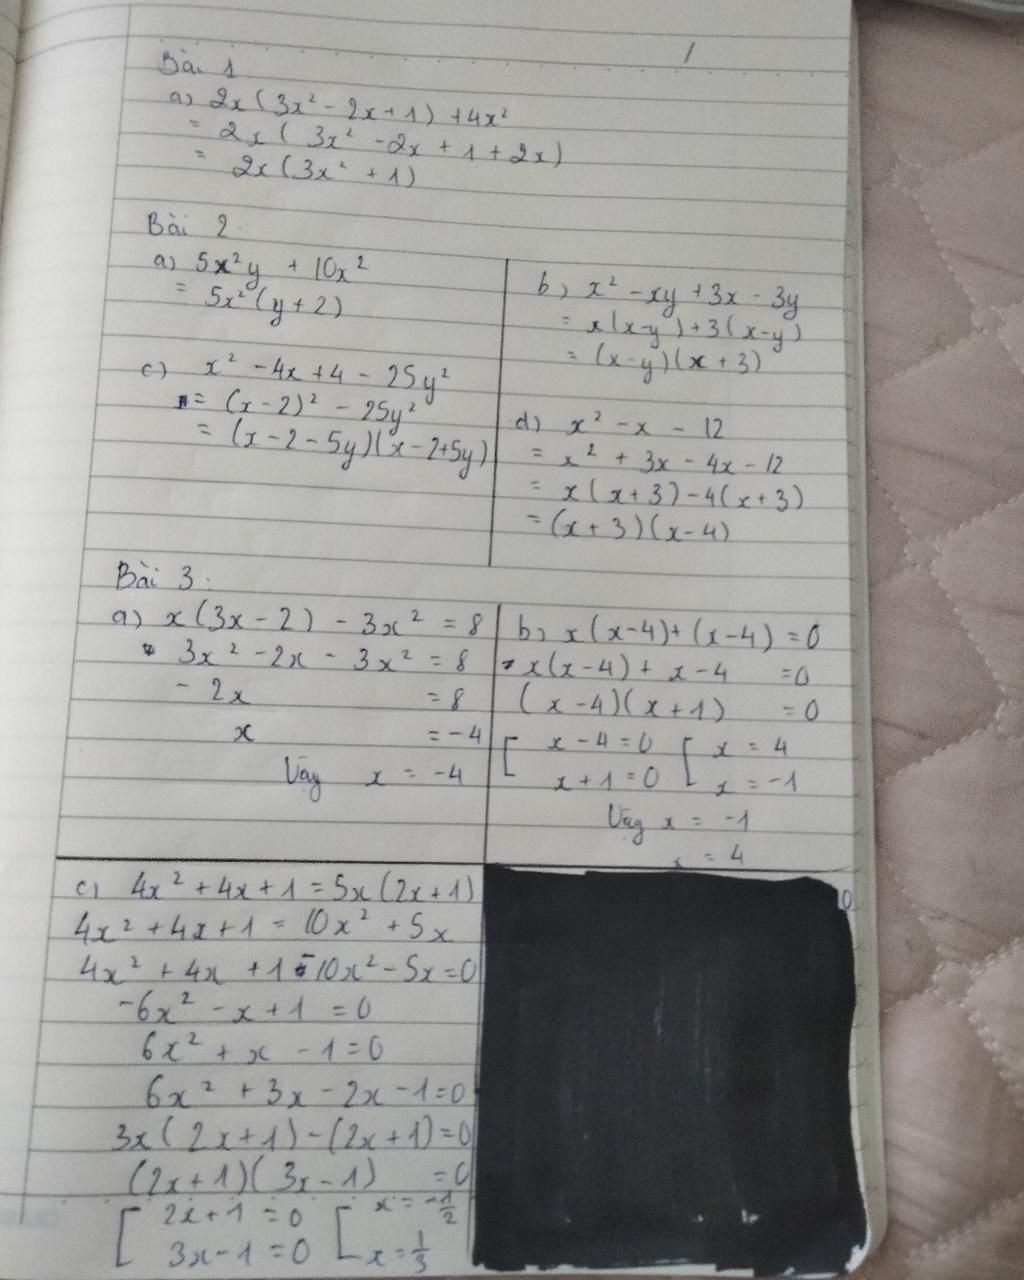 Bài 1
a) 2x(3x² - 2x + 1) + 4x²
= 2x(3x² - 2x + 1 + 2x)
= 2x(3x² + 1)
Bài 2
a) 5x²y + 10x²
= 5x²(y + 2)
b) x² - xy + 3x - 3y
= x(x-y) + 3(x-y)
= (x-y)(x + 3)
c) x² - 4x + 4 - 25y²
= (x-2)² - 25y²
= (x-2-5y)(x-2+5y)
d) x² - x - 12
= x² + 3x - 4x - 12
= x(x+3) - 4(x+3)
= (x+3)(x-4)
Bài 3.
a) x(3x-2) - 3x² = 8
3x² - 2x - 3x² = 8
- 2x = 8
x = -4
Vậy x = -4
b) x(x-4) + (x-4) = 0
x(x-4) + x - 4 = 0
(x-4)(x+1) = 0
[ x - 4 = 0 [ x = 4
x + 1 = 0 x = -1
Vậy x = -1
x = 4
c) 4x² + 4x + 1 = 5x(2x+1)
4x² + 4x + 1 = 10x² + 5x
4x² + 4x + 1 - 10x² - 5x = 0
-6x² - x + 1 = 0
6x² + x - 1 = 0
6x² + 3x - 2x - 1 = 0
3x(2x+1) - (2x+1) = 0
(2x+1)(3x-1) = 0
[ 2x+1 = 0 [ x = -1/2
3x-1 = 0 x = 1/3